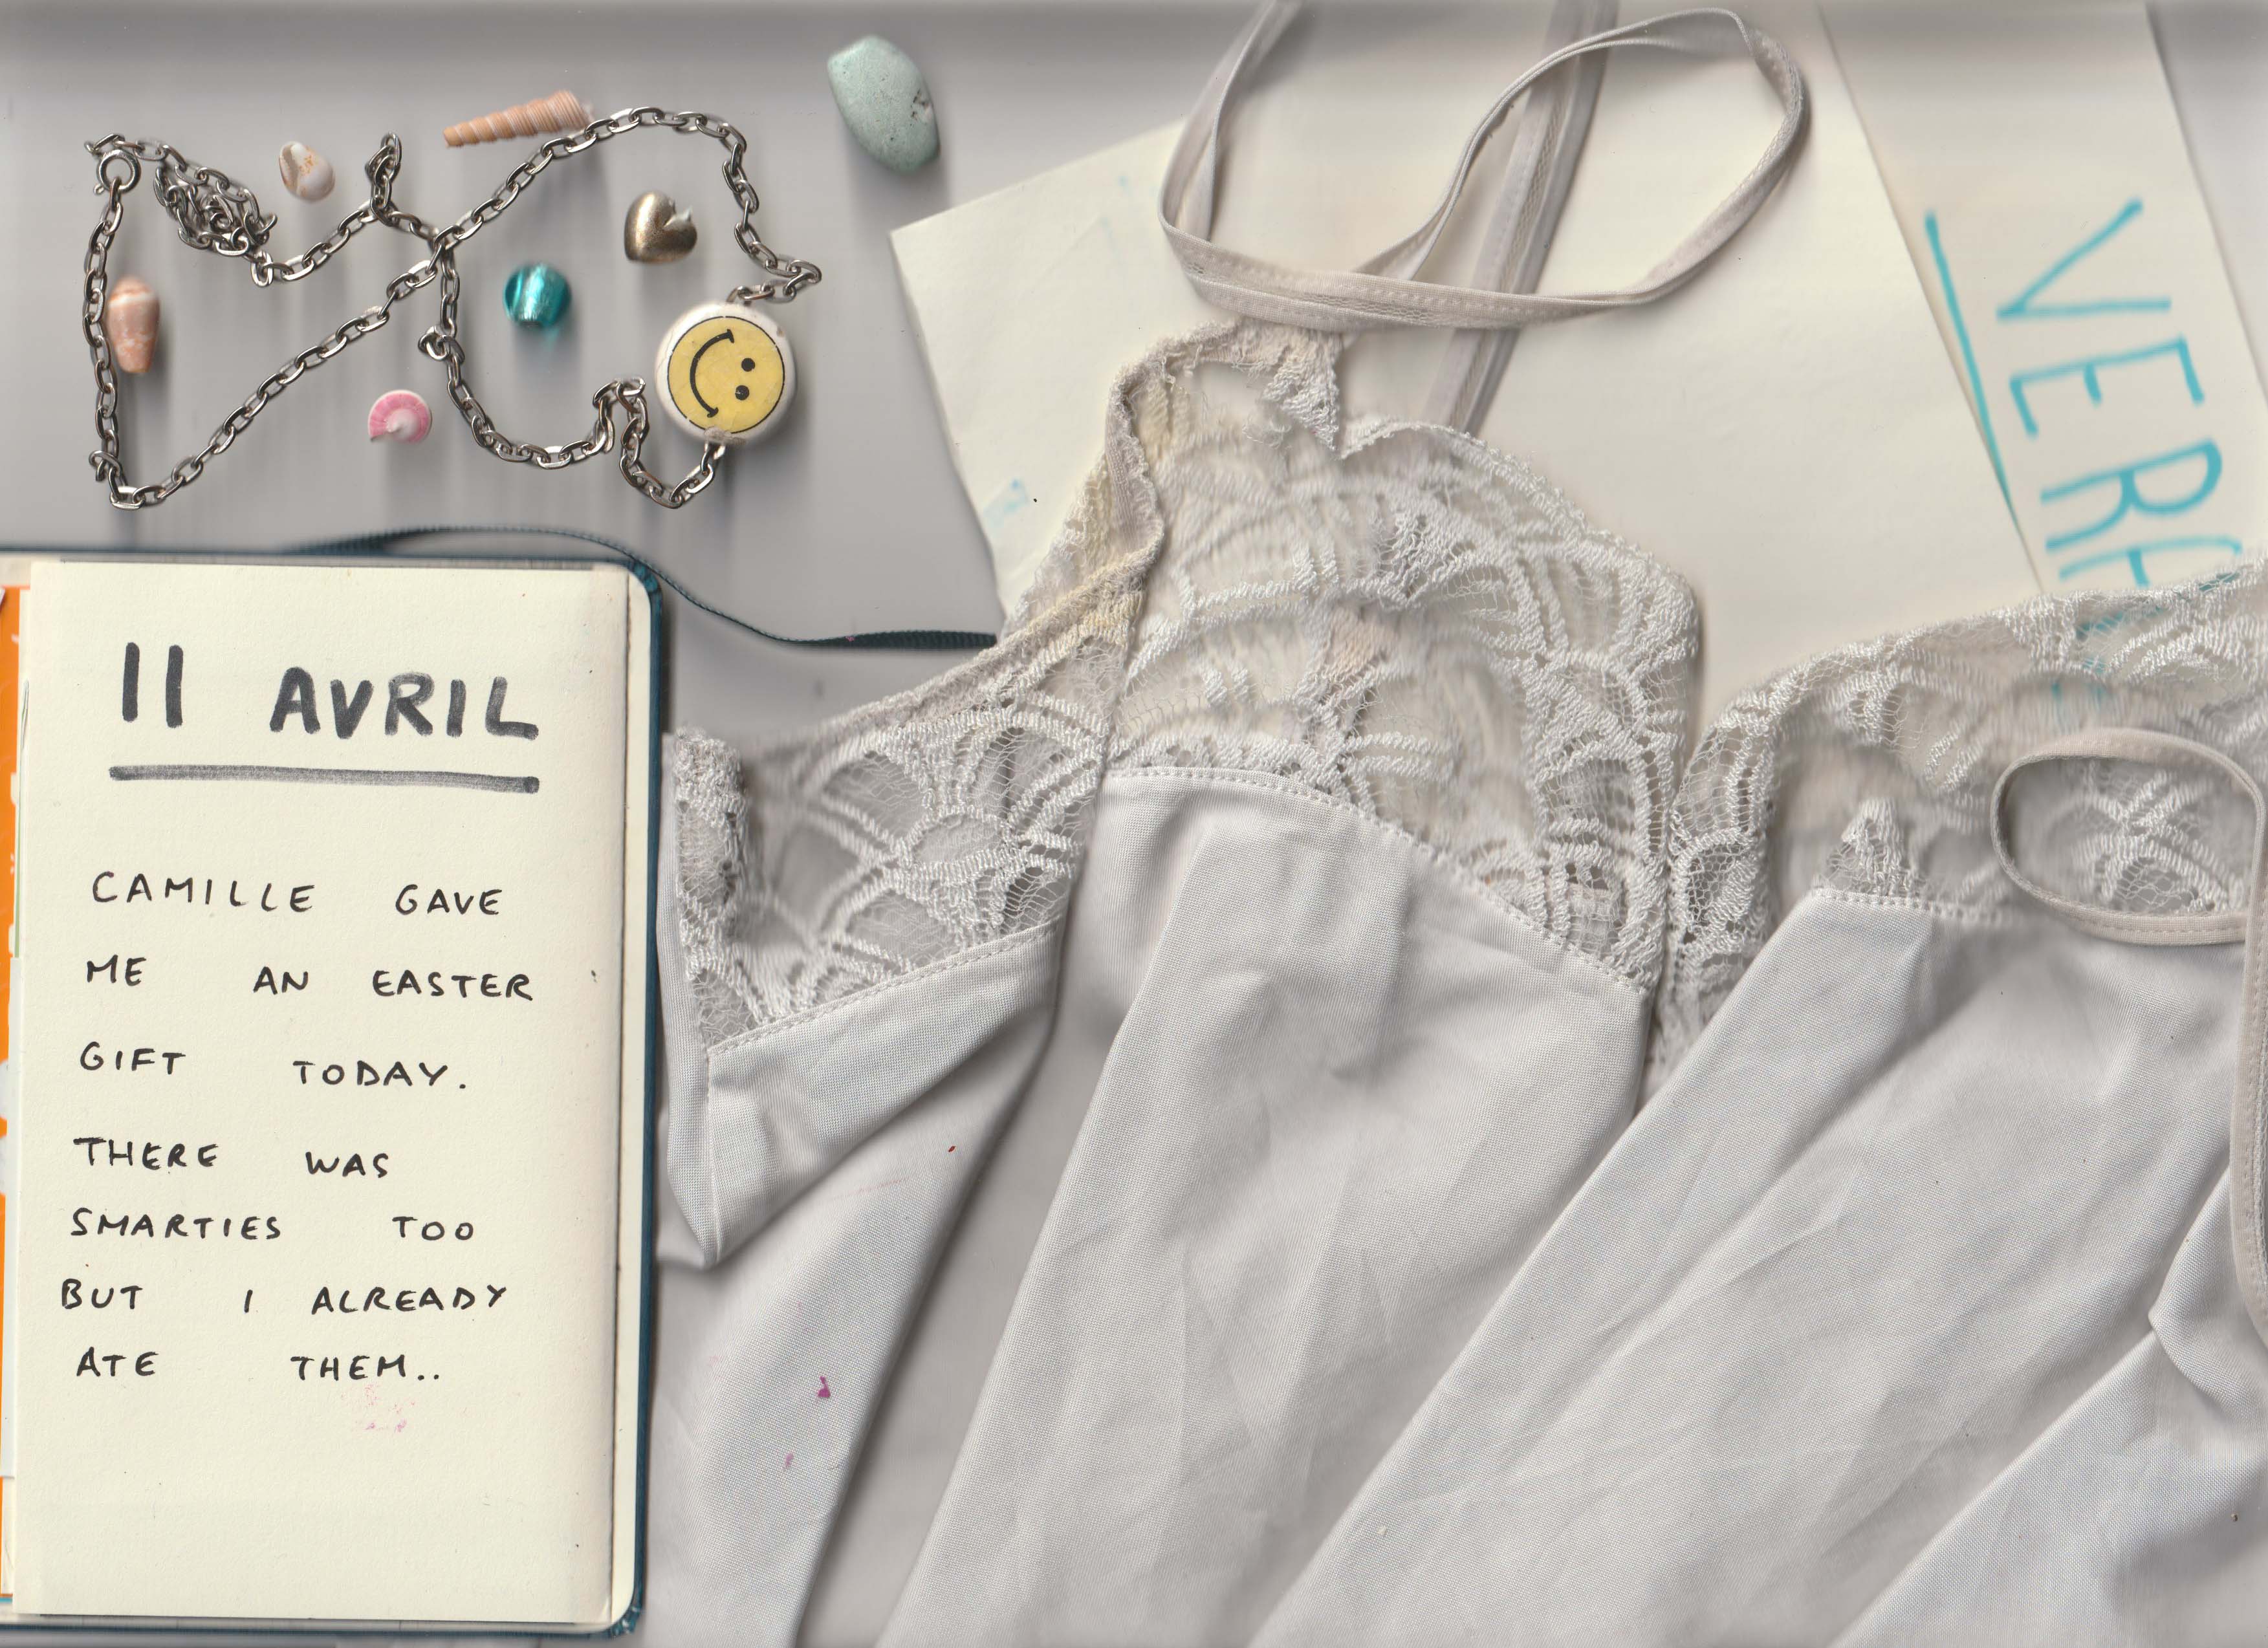 11 AVRIL
CAMILLE GAVE
ME AN EASTER
GIFT TODAY.
THERE WAS
SMARTIES TOO
BUT I ALREADY
ATE THEM..